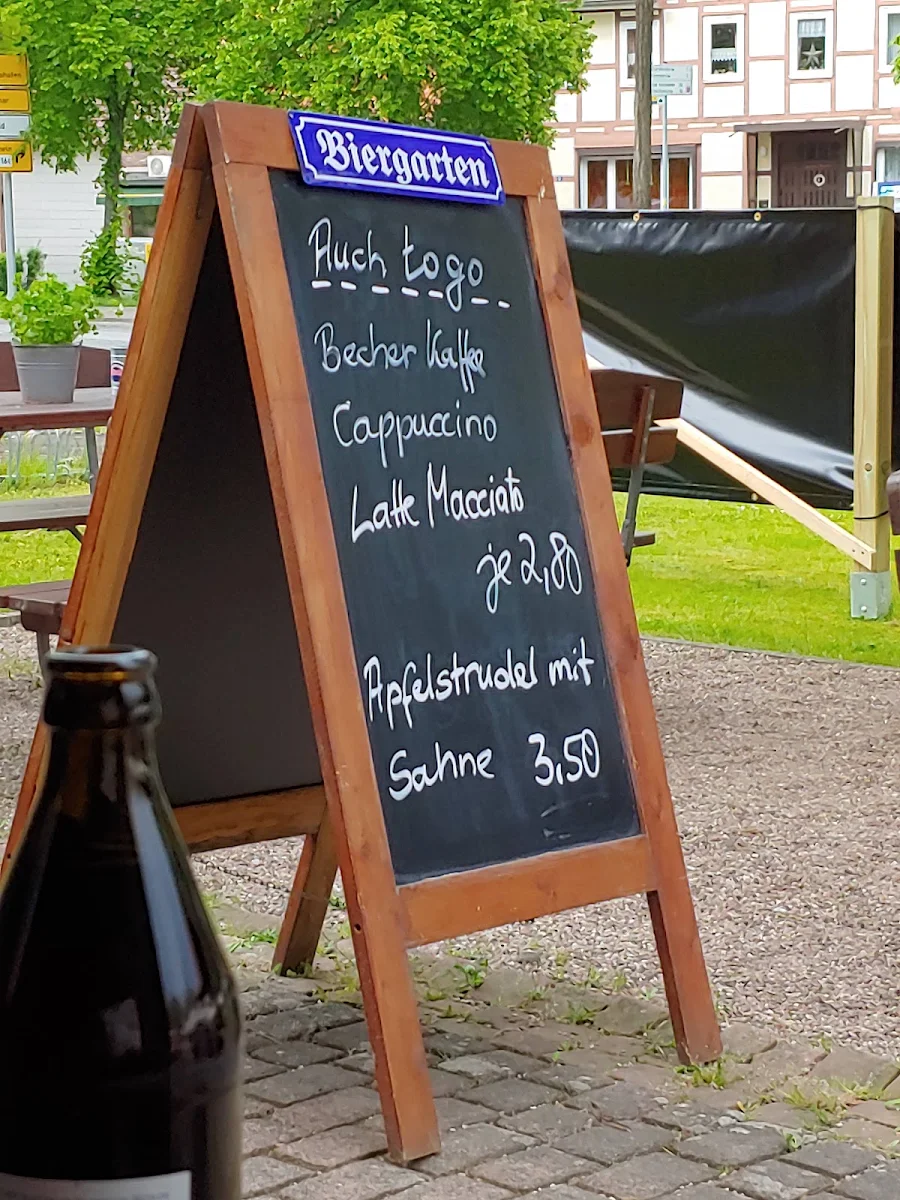 Biergarten
Auch to go
Becher Kaffee
Cappuccino
Latte Macciato
je 2,80
Apfelstrudel mit
Sahne 3,50